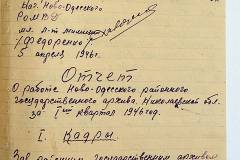 Нач. Ново-Одесского
РОМВД
мл. л-т милиции
/Федоренко/
5 апреля 1946 г.
Отчет
О работе Ново-Одесского районного
государственного архива, Николаевской обл.
за I ый квартал 1946 год.
I. Кадры.
Зав. районным государственным архивом